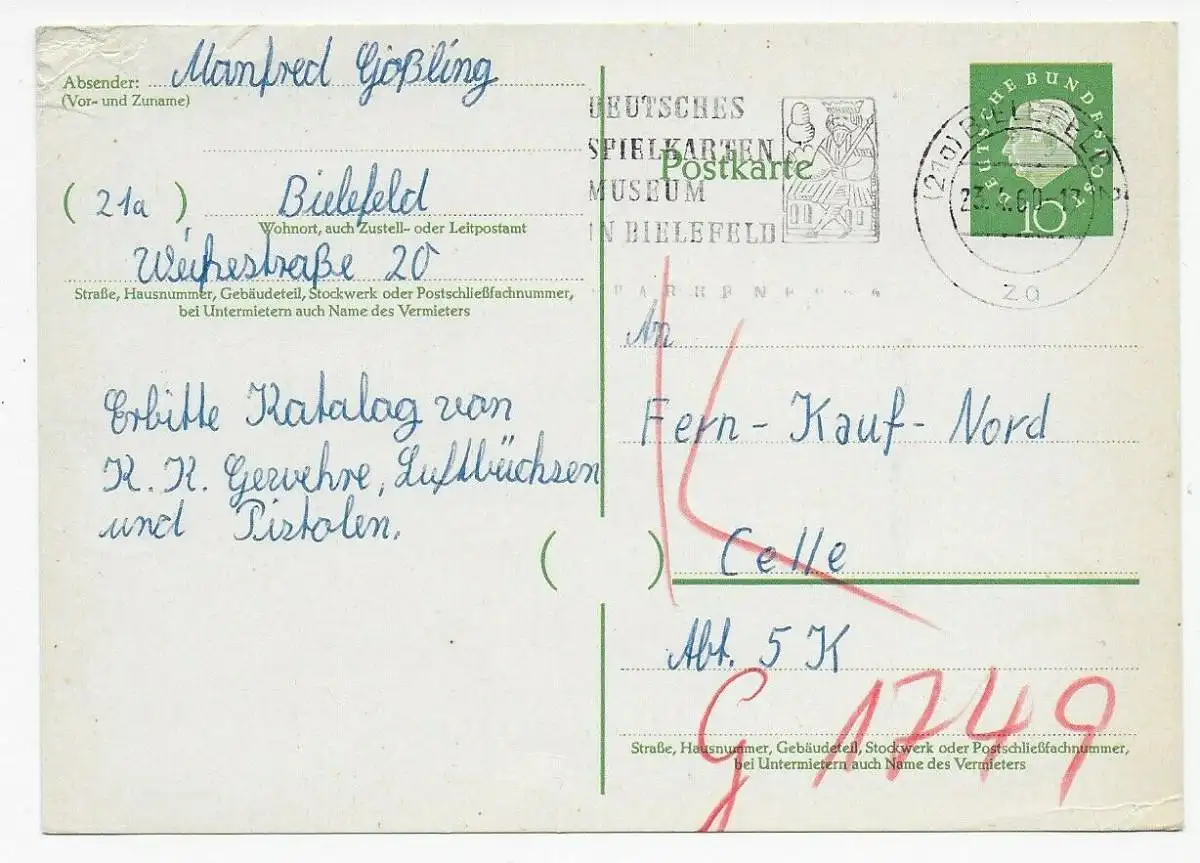 Absender: Manfred Gößling
(Vor- und Zuname)
(21a) Bielefeld
Wohnort, auch Zustell- oder Leitpostamt
20
Straße, Hausnummer, Gebäudeteil, Stockwerk oder Postschließfachnummer,
bei Untermietern auch Name des Vermieters
Erbitte Katalag von
K. K. Gewehre, Luftbüchsen
und Pistolen.
DEUTSCHES
SPIELKARTEN
MUSEUM
IN BIELEFELD
Postkarte
DEUTSCHE BUNDESPOST
10
(21a) BIELEFELD
23.4.60
za
An
Fern-Kauf-Nord
( ) Celle
Abt. 5 K
G 1749
Straße, Hausnummer, Gebäudeteil, Stockwerk oder Postschließfachnummer,
bei Untermietern auch Name des Vermieters